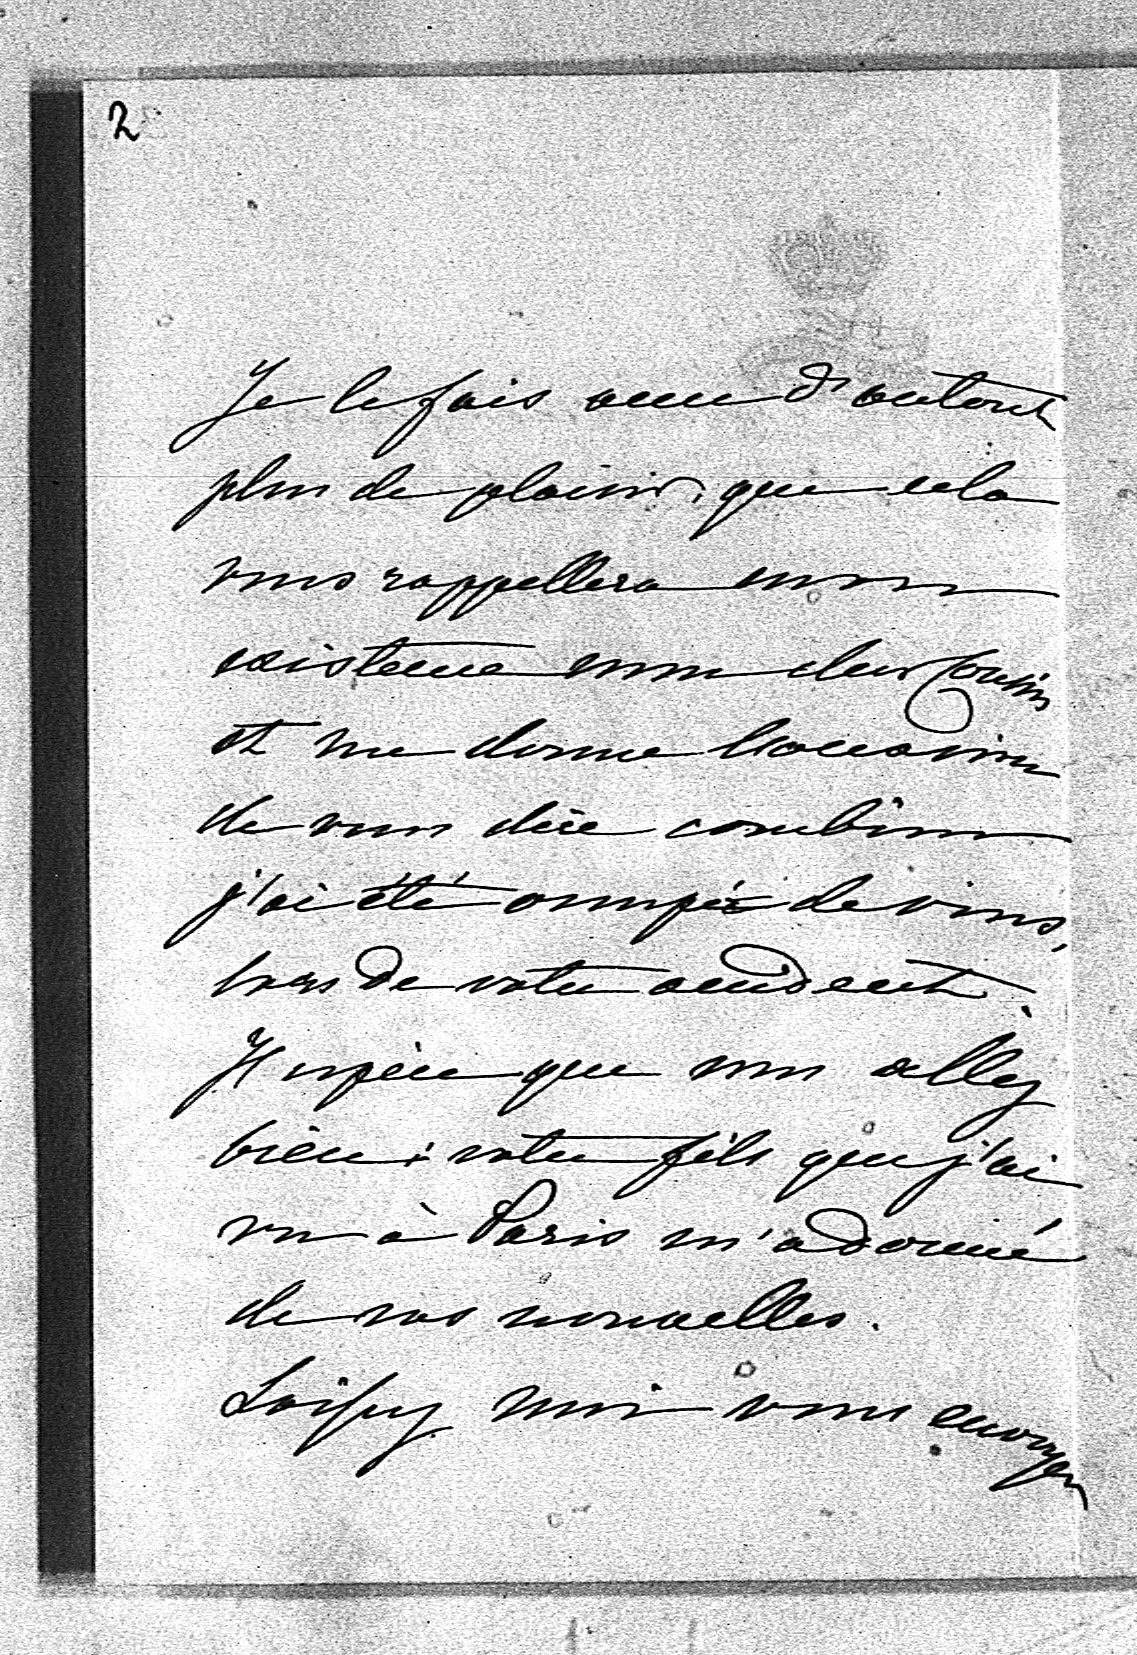 2
Je le fais avec d'autant
plus de plaisir, que cela
vous rappellera mon
existence mon cher Cousin
et me donne l'occasion
de vous dire combien
j'ai été occupée de vous,
lors de votre accident.
J'espère que vous allez
bien; votre fils que j'ai
vu à Paris m'a donné
de vos nouvelles.
Laissez moi vous envoyer